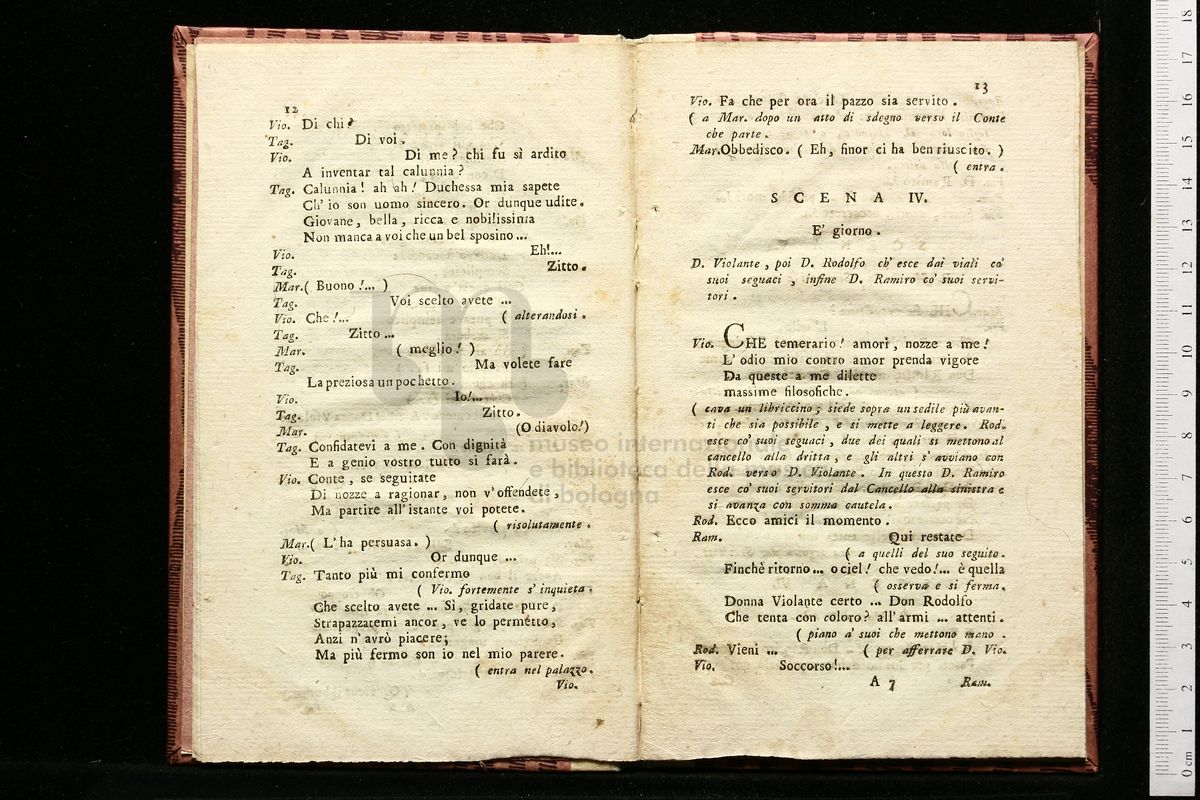 12
Vio. Di chi?
Tag. Di voi.
Vio. Di me? chi fu sì ardito
A inventar tal calunnia?
Tag. Calunnia! ah ah! Duchessa mia sapete
Ch' io son uomo sincero. Or dunque udite.
Giovane, bella, ricca e nobilissima
Non manca a voi che un bel sposino ...
Vio. Eh!...
Tag. Zitto.
Mar. ( Buono!... )
Tag. Voi scelto avete ...
Vio. Che!... ( alterandosi.
Tag. Zitto ...
Mar. ( meglio! )
Tag. Ma volete fare
La preziosa un pochetto.
Vio. Io!...
Tag. Zitto.
Mar. (O diavolo!)
Tag. Confidatevi a me. Con dignità
E a genio vostro tutto si farà.
Vio. Conte, se seguitate
Di nozze a ragionar, non v' offendete,
Ma partire all' istante voi potete.
( risolutamente.
Mar. ( L' ha persuasa. )
Vio. Or dunque ...
Tag. Tanto più mi confermo
( Vio. fortemente s' inquieta.
Che scelto avete ... Sì, gridate pure,
Strapazzatemi ancor, ve lo permetto,
Anzi n' avrò piacere;
Ma più fermo son io nel mio parere.
( entra nel palazzo.
Vio.
13
Vio. Fa che per ora il pazzo sia servito.
( a Mar. dopo un atto di sdegno verso il Conte
che parte.
Mar. Obbedisco. ( Eh, finor ci ha ben riuscito. )
( entra.
SCENA IV.
E' giorno.
D. Violante, poi D. Rodolfo ch' esce dai viali co'
suoi seguaci, infine D. Ramiro co' suoi servi-
tori.
Vio. CHE temerario! amori, nozze a me!
L' odio mio contro amor prenda vigore
Da queste a me dilette
massime filosofiche.
( cava un libriccino; siede sopra un sedile più avan-
ti che sia possibile, e si mette a leggere. Rod.
esce co' suoi seguaci, due dei quali si mettono al
cancello alla dritta, e gli altri s' avviano con
Rod. verso D. Violante. In questo D. Ramiro
esce co' suoi servitori dal Cancello alla sinistra e
si avanza con somma cautela.
Rod. Ecco amici il momento.
Ram. Qui restate
( a quelli del suo seguito.
Finchè ritorno ... o ciel! che vedo!... è quella
( osserva e si ferma.
Donna Violante certo ... Don Rodolfo
Che tenta con coloro? all' armi ... attenti.
( piano a' suoi che mettono mano.
Rod. Vieni ... ( per afferrare D. Vio.
Vio. Soccorso!...
A 7 Ram.
museo internaz
e biblioteca de
di bologna
0 cm 1 2 3 4 5 6 7 8 9 10 11 12 13 14 15 16 17 18